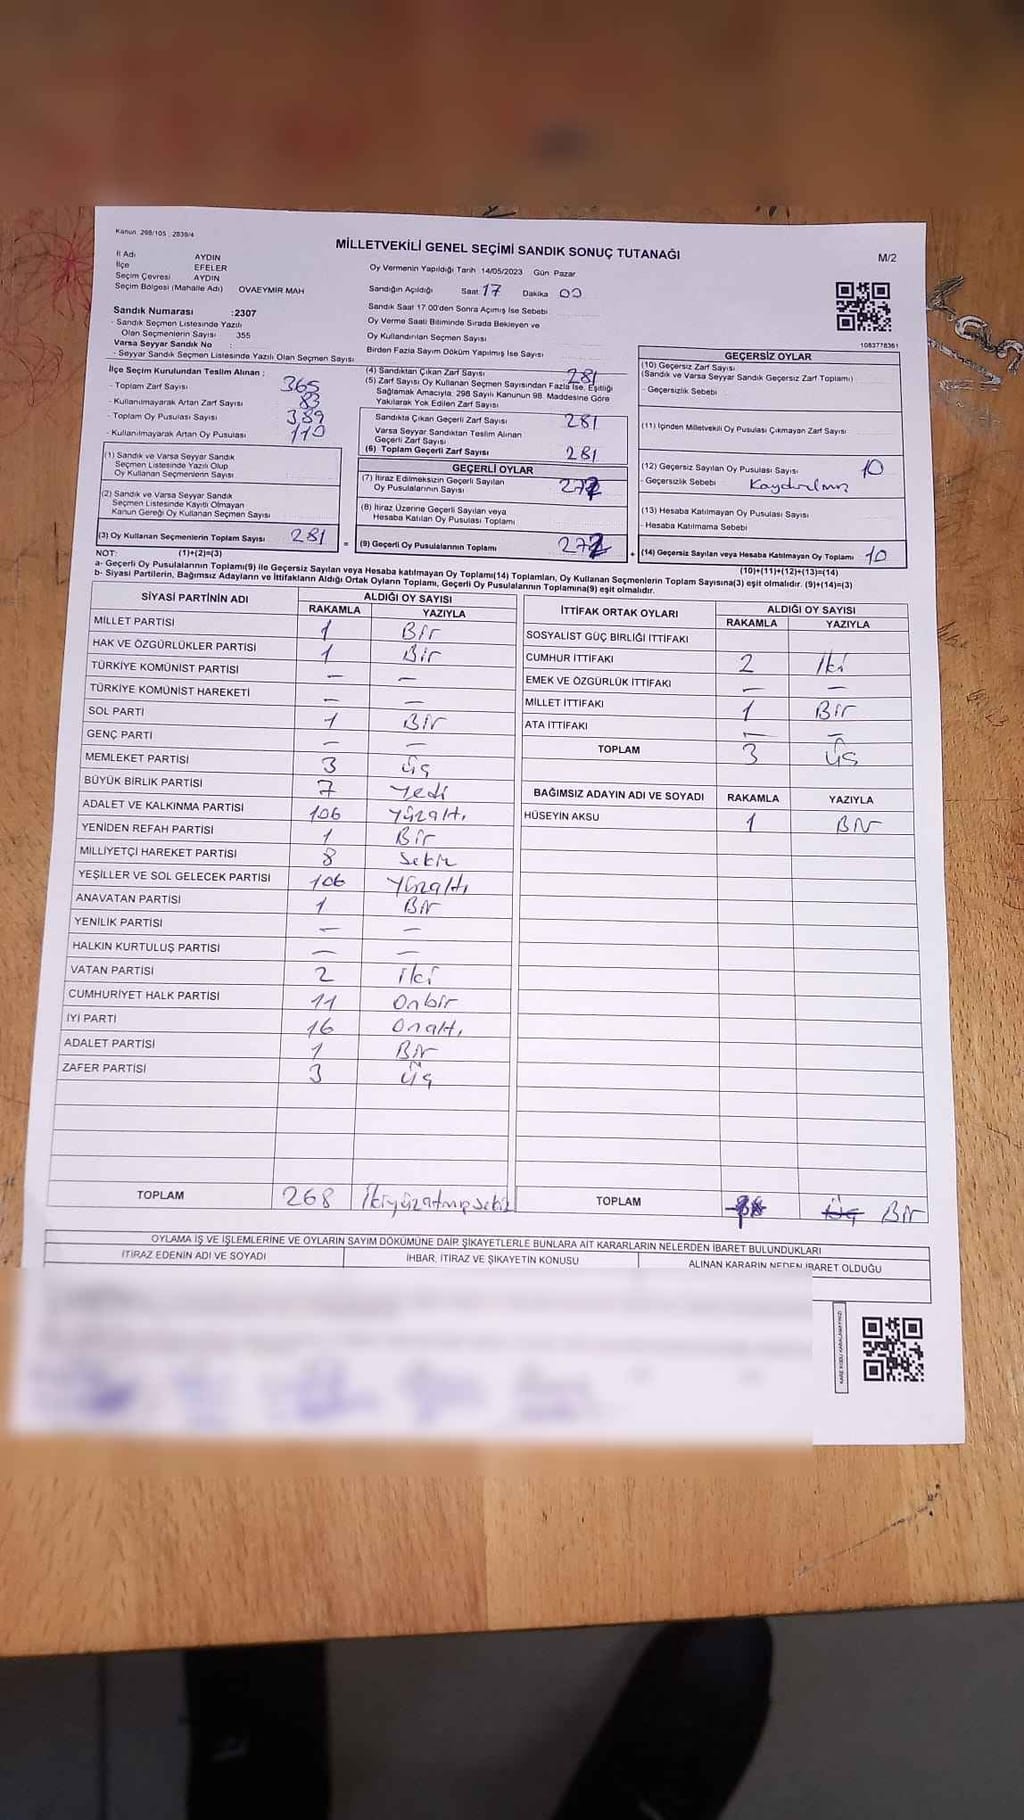 Kanun 298/105 2839/4
MİLLETVEKİLİ GENEL SEÇİMİ SANDIK SONUÇ TUTANAĞI
M/2
İl Adı AYDIN
İlçe EFELER
Seçim Çevresi AYDIN
Seçim Bölgesi (Mahalle Adı) OVAEYMİR MAH
Oy Vermenin Yapıldığı Tarih 14/05/2023 Gün Pazar
Sandığın Açıldığı Saat 17 Dakika 00
Sandık Saat 17.00'den Sonra Açımış İse Sebebi
Oy Verme Saati Bitiminde Sırada Bekleyen ve
Oy Kullandırılan Seçmen Sayısı
Birden Fazla Sayım Döküm Yapılmış İse Sayısı
Sandık Numarası :2307
- Sandık Seçmen Listesinde Yazılı
Olan Seçmenlerin Sayısı 355
Varsa Seyyar Sandık No :
- Seyyar Sandık Seçmen Listesinde Yazılı Olan Seçmen Sayısı
1083778361
İlçe Seçim Kurulundan Teslim Alınan :
- Toplam Zarf Sayısı 365
- Kullanılmayarak Artan Zarf Sayısı 83
- Toplam Oy Pusulası Sayısı 389
- Kullanılmayarak Artan Oy Pusulası
(1) Sandık ve Varsa Seyyar Sandık
Seçmen Listesinde Yazılı Olup
Oy Kullanan Seçmenlerin Sayısı
(2) Sandık ve Varsa Seyyar Sandık
Seçmen Listesinde Kayıtlı Olmayan
Kanun Gereği Oy Kullanan Seçmen Sayısı
(3) Oy Kullanan Seçmenlerin Toplam Sayısı 281
(4) Sandıktan Çıkan Zarf Sayısı 281
(5) Zarf Sayısı Oy Kullanan Seçmen Sayısından Fazla İse, Eşitliği
Sağlamak Amacıyla, 298 Sayılı Kanunun 98. Maddesine Göre
Yakılarak Yok Edilen Zarf Sayısı
Sandıkta Çıkan Geçerli Zarf Sayısı 281
Varsa Seyyar Sandıktan Teslim Alınan
Geçerli Zarf Sayısı
(6) Toplam Geçerli Zarf Sayısı 281
GEÇERLİ OYLAR
(7) İtiraz Edilmeksizin Geçerli Sayılan
Oy Pusulalarının Sayısı 272
(8) İtiraz Üzerine Geçerli Sayılan veya
Hesaba Katılan Oy Pusulası Toplamı
= (9) Geçerli Oy Pusulalarının Toplamı 272
GEÇERSİZ OYLAR
(10) Geçersiz Zarf Sayısı
(Sandık ve Varsa Seyyar Sandık Geçersiz Zarf Toplamı)
- Geçersizlik Sebebi
(11) İçinden Milletvekili Oy Pusulası Çıkmayan Zarf Sayısı
(12) Geçersiz Sayılan Oy Pusulası Sayısı 10
- Geçersizlik Sebebi
(13) Hesaba Katılmayan Oy Pusulası Sayısı
- Hesaba Katılmama Sebebi
+ (14) Geçersiz Sayılan veya Hesaba Katılmayan Oy Toplamı 10
NOT: (1)+(2)=(3) (10)+(11)+(12)+(13)=(14)
a- Geçerli Oy Pusulalarının Toplamı(9) ile Geçersiz Sayılan veya Hesaba katılmayan Oy Toplamı(14) Toplamları, Oy Kullanan Seçmenlerin Toplam Sayısına(3) eşit olmalıdır. (9)+(14)=(3)
b- Siyasi Partilerin, Bağımsız Adayların ve İttifakların Aldığı Ortak Oyların Toplamı, Geçerli Oy Pusulalarının Toplamına(9) eşit olmalıdır.
SİYASİ PARTİNİN ADI ALDIĞI OY SAYISI
RAKAMLA YAZIYLA
MİLLET PARTİSİ 1 Bir
HAK VE ÖZGÜRLÜKLER PARTİSİ 1 Bir
TÜRKİYE KOMÜNİST PARTİSİ — —
TÜRKİYE KOMÜNİST HAREKETİ — —
SOL PARTİ 1 Bir
GENÇ PARTİ — —
MEMLEKET PARTİSİ 3 üç
BÜYÜK BİRLİK PARTİSİ 7 Yedi
ADALET VE KALKINMA PARTİSİ 106 Yüzaltı
YENİDEN REFAH PARTİSİ 1 Bir
MİLLİYETÇİ HAREKET PARTİSİ 8 Sekiz
YEŞİLLER VE SOL GELECEK PARTİSİ 106 Yüzaltı
ANAVATAN PARTİSİ 1 Bir
YENİLİK PARTİSİ — —
HALKIN KURTULUŞ PARTİSİ — —
VATAN PARTİSİ 2 iki
CUMHURİYET HALK PARTİSİ 11 Onbir
İYİ PARTİ 16 Onaltı
ADALET PARTİSİ 1 Bir
ZAFER PARTİSİ 3 üç
TOPLAM 268 İkiyüzatmışsekiz
İTTİFAK ORTAK OYLARI ALDIĞI OY SAYISI
RAKAMLA YAZIYLA
SOSYALİST GÜÇ BİRLİĞİ İTTİFAKI
CUMHUR İTTİFAKI 2 iki
EMEK VE ÖZGÜRLÜK İTTİFAKI — —
MİLLET İTTİFAKI 1 Bir
ATA İTTİFAKI — —
TOPLAM 3 üç
BAĞIMSIZ ADAYIN ADI VE SOYADI RAKAMLA YAZIYLA
HÜSEYİN AKSU 1 Bir
TOPLAM Üç Bir
OYLAMA İŞ VE İŞLEMLERİNE VE OYLARIN SAYIM DÖKÜMÜNE DAİR ŞİKAYETLERLE BUNLARA AİT KARARLARIN NELERDEN İBARET BULUNDUKLARI
İTİRAZ EDENİN ADI VE SOYADI İHBAR, İTİRAZ VE ŞİKAYETİN KONUSU ALINAN KARARIN NEDEN İBARET OLDUĞU
KARE KODU KARALAMAYINIZ